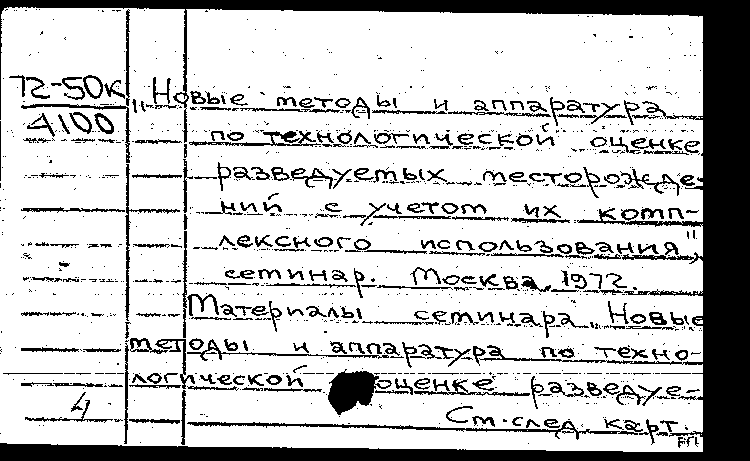 72-50к „Новые методы и аппаратура
4100 по технологической оценке
разведуемых месторожде-
ний с учетом их комп-
лексного использования",
семинар. Москва, 1972.
Материалы семинара „Новые
методы и аппаратура по техно-
логической оценке разведуе-
4 См. след. карт.